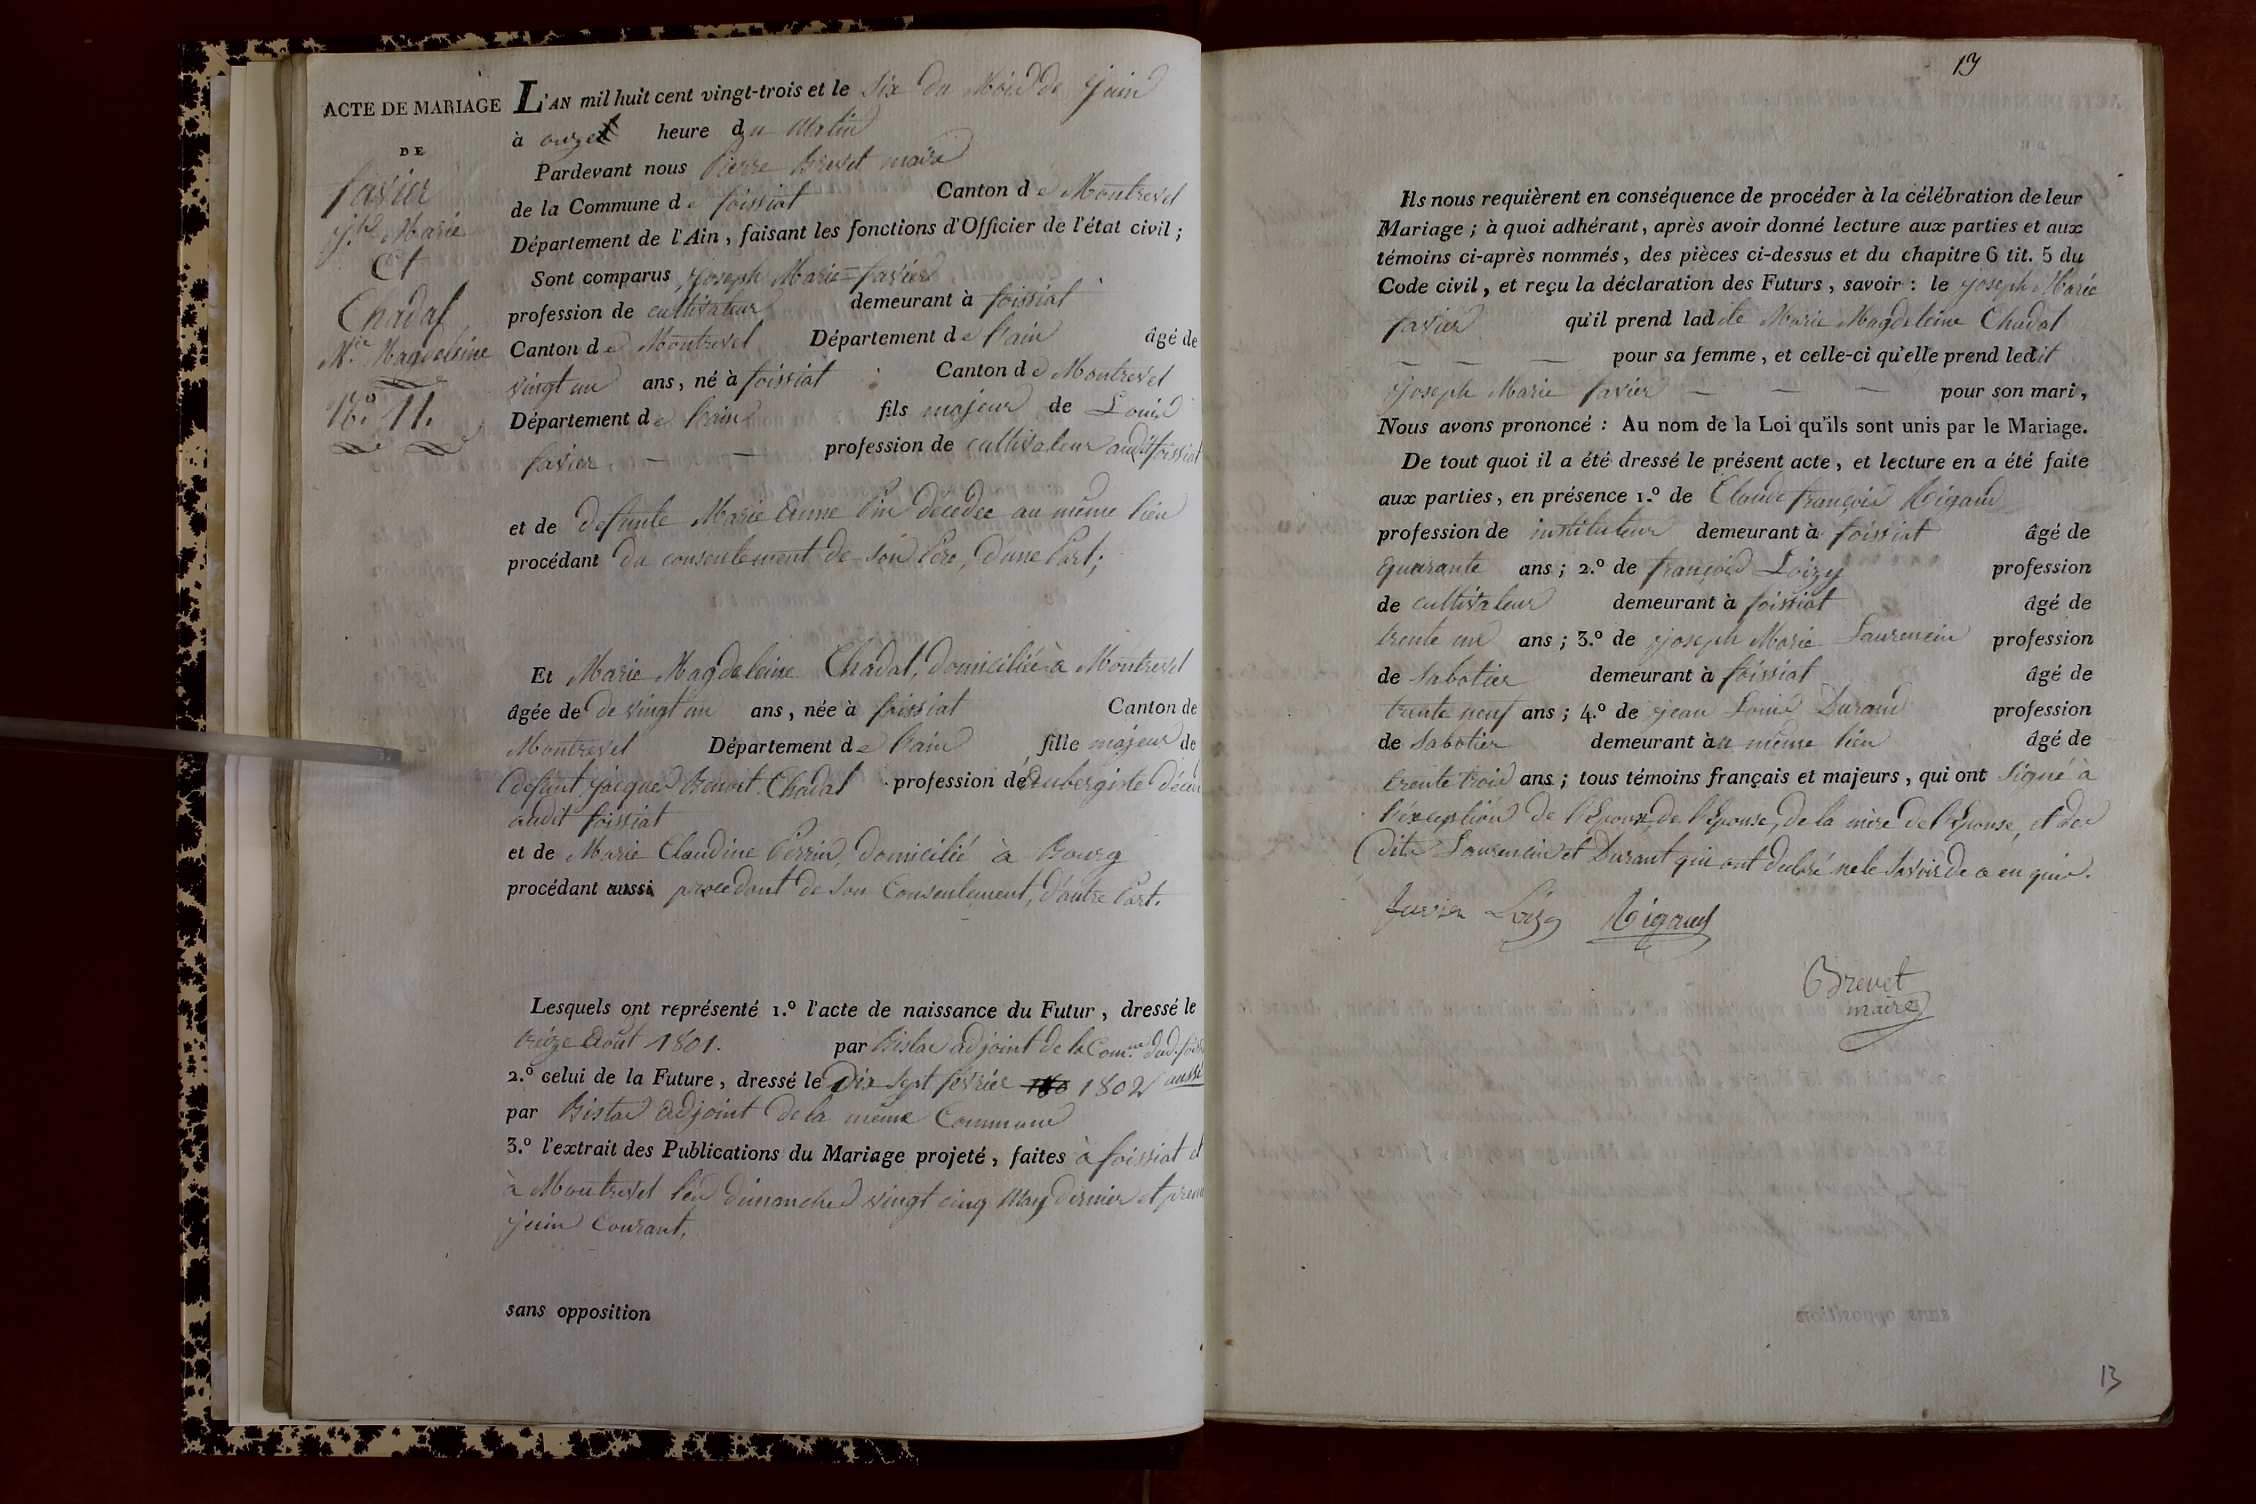 ACTE DE MARIAGE
DE
favier
j.ph Marie
Et
Chadal
M.ie Magdeleine
N.o 11.
L'AN mil huit cent vingt-trois et le Six du Mois de juin
à onze heure du Matin
Pardevant nous Pierre Brevet maire
de la Commune de foissiat Canton de Montrevel
Département de l'Ain, faisant les fonctions d'Officier de l'état civil;
Sont comparus joseph Marie favier
profession de cultivateur demeurant à foissiat
Canton de Montrevel Département de l'ain âgé de
vingt un ans, né à foissiat Canton de Montrevel
Département de l'ain fils majeur de Louis
favier — — profession de cultivateur audit foissiat
et de defunte Marie Anne Pin décédée au même lieu
procédant du consentement de son Père, d'une Part;
Et Marie Magdeleine Chadal, domiciliée à Montrevel
âgée de de vingt un ans, née à foissiat Canton de
Montrevel Département de l'ain fille majeur de
defunt jacques Benoit Chadal profession de aubergiste
audit foissiat
et de Marie Claudine Perrin, domicilié à Bourg
procédant aussi procedant de son Consentement, d'autre Part.
Lesquels ont représenté 1.º l'acte de naissance du Futur, dressé le
treize Août 1801. par Bistac adjoint de la Com.ne dud.
2.º celui de la Future, dressé le Dix Sept février 180 1802 aussi
par Bistac adjoint de la même Commune
3.º l'extrait des Publications du Mariage projeté, faites à foissiat et
à Montrevel les dimanches vingt cinq May dernier et
juin Courant.
sans opposition
13
Ils nous requièrent en conséquence de procéder à la célébration de leur
Mariage; à quoi adhérant, après avoir donné lecture aux parties et aux
témoins ci-après nommés, des pièces ci-dessus et du chapitre 6 tit. 5 du
Code civil, et reçu la déclaration des Futurs, savoir: le joseph Marie
favier qu'il prend ladite Marie Magdeleine Chadal
— — — pour sa femme, et celle-ci qu'elle prend ledit
joseph Marie favier — — — pour son mari,
Nous avons prononcé: Au nom de la Loi qu'ils sont unis par le Mariage.
De tout quoi il a été dressé le présent acte, et lecture en a été faite
aux parties, en présence 1.º de Claude françois Rigaud
profession de instituteur demeurant à foissiat âgé de
quarante ans; 2.º de françois Loizy profession
de cultivateur demeurant à foissiat âgé de
trente un ans; 3.º de joseph Marie Laurencin profession
de Sabotier demeurant à foissiat âgé de
trente neuf ans; 4.º de jean Louis Durand profession
de Sabotier demeurant au même lieu âgé de
trente trois ans; tous témoins français et majeurs, qui ont Signé à
l'exception de l'Epoux, de l'Epouse, de la mère de l'Epouse, et des
dits Laurencin et Durant qui ont declaré ne le Savoir de ce enquis.
favier Loizy Rigaud
Brevet
maire
13